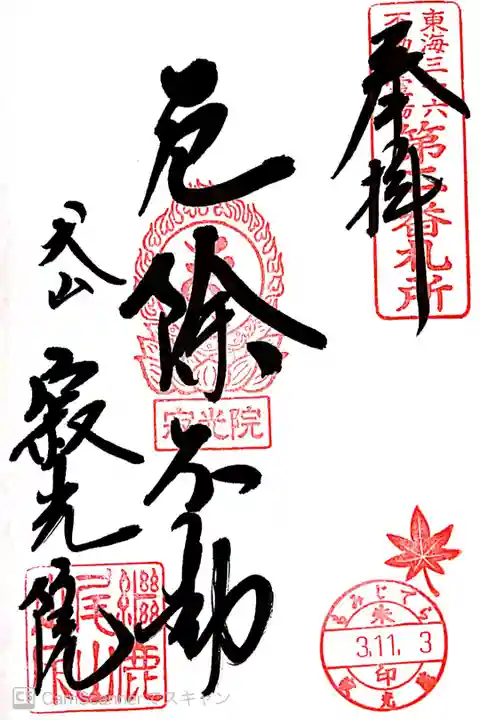 奉拝
東海三十六
不動尊霊場
第三番札所
厄除不動
寂光院
犬山
寂光院
継鹿
尾山
もみじでら
3.11.3
印
CamScanner でスキャン